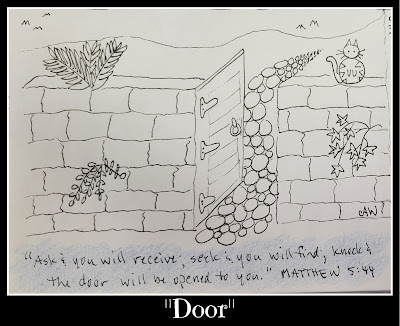 CAW
"Ask & you will receive; seek & you will find; knock &
the door will be opened to you." MATTHEW 5:44
"Door"